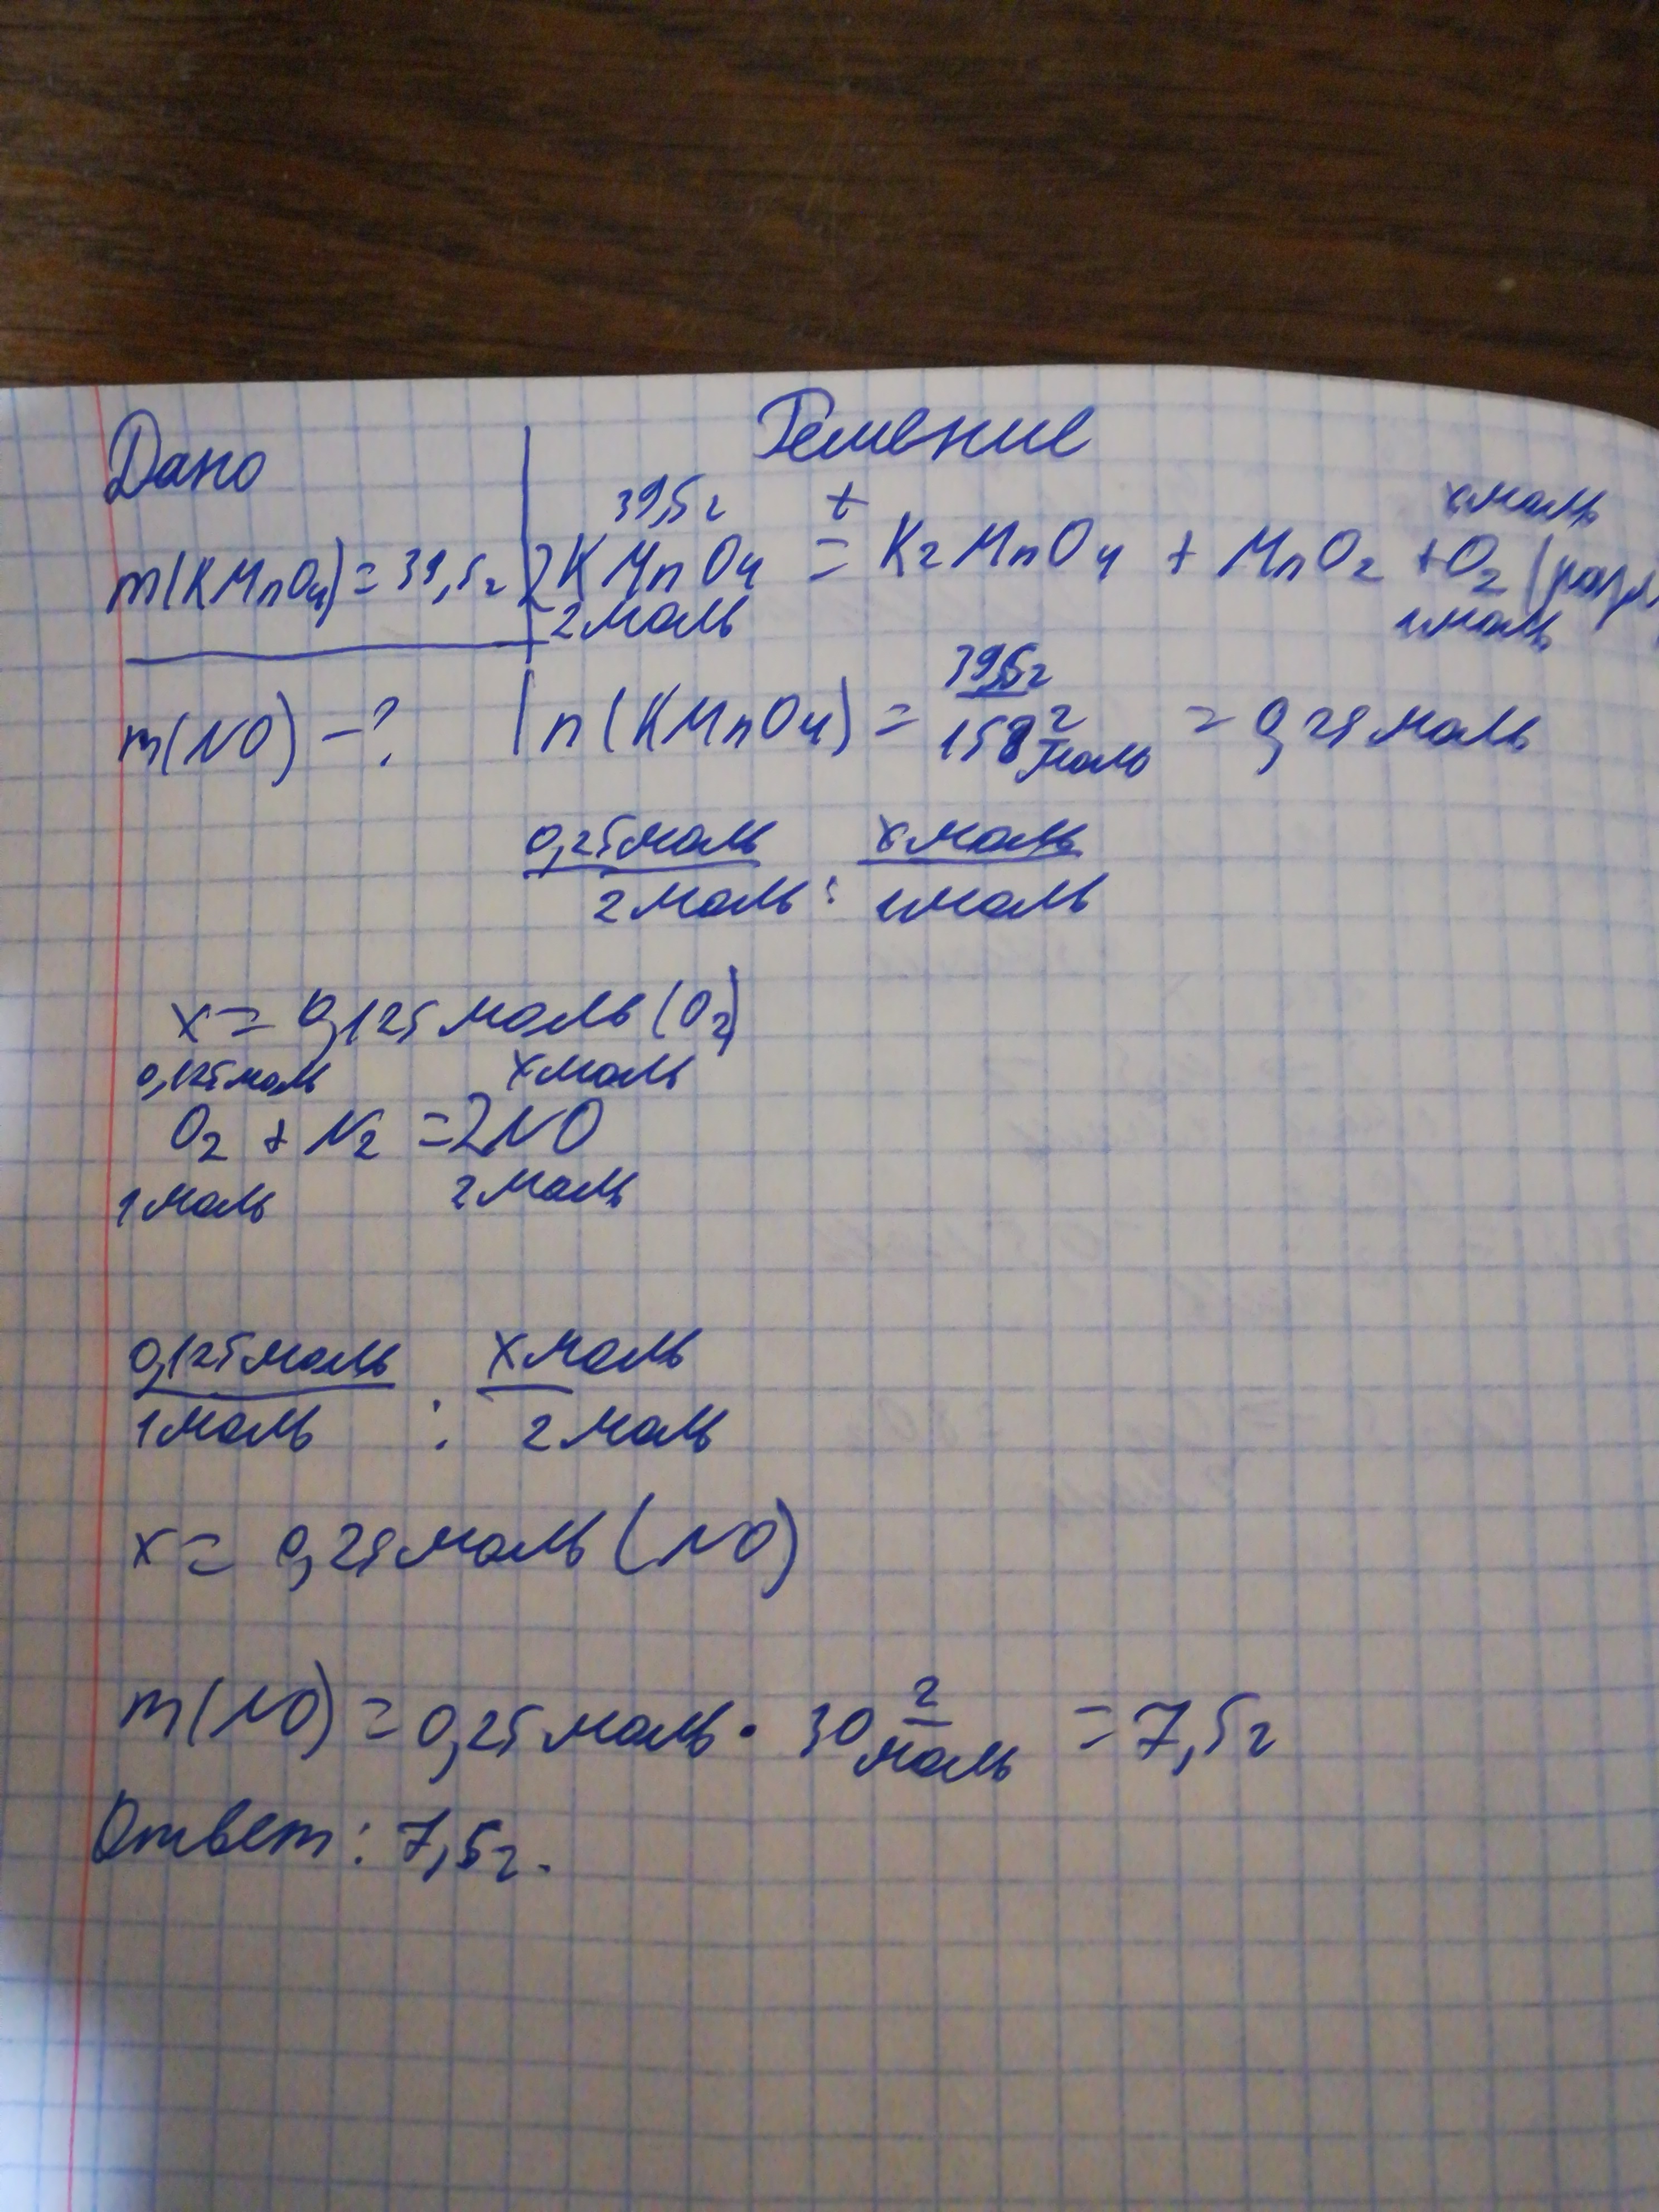 Дано Решение
39,5г t x моль
m(KMnO4)=39,5г 2KMnO4 = K2MnO4 + MnO2 +O2 (разл
2 моль 1 моль
m(NO) -? n(KMnO4) = 39,5г / 158 г/моль = 0,25 моль
0,25 моль / 2 моль : x моль / 1 моль
x = 0,125 моль (O2)
0,125 моль x моль
O2 + N2 = 2NO
1 моль 2 моль
0,125 моль / 1 моль : x моль / 2 моль
x = 0,25 моль (NO)
m(NO) = 0,25 моль · 30 г/моль = 7,5г
Ответ: 7,5г.